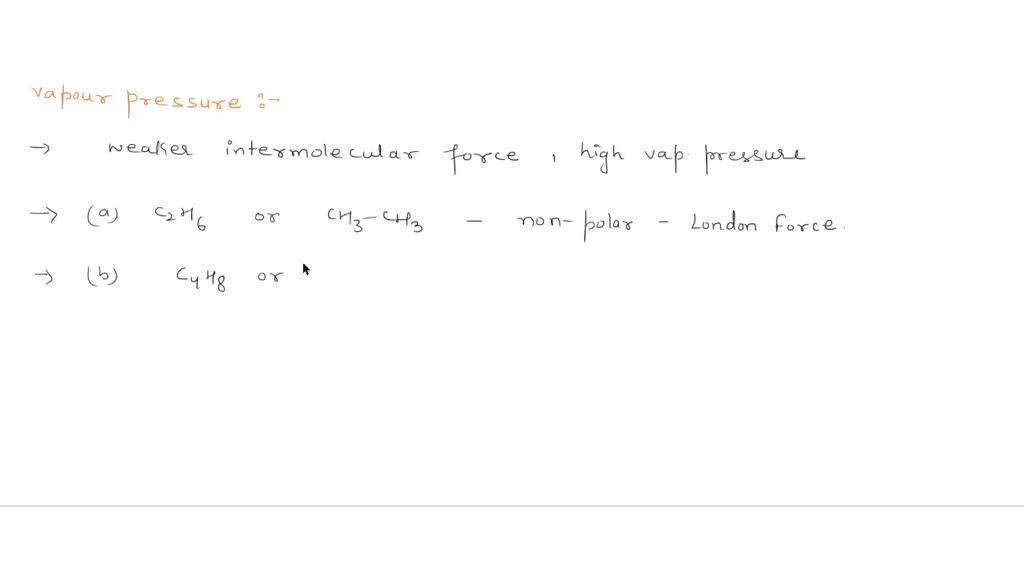 vapour pressure :-
→ weaker intermolecular force , high vap. pressure
→ (a) C₂H₆ or CH₃-CH₃ - non-polar - London force.
→ (b) C₄H₈ or